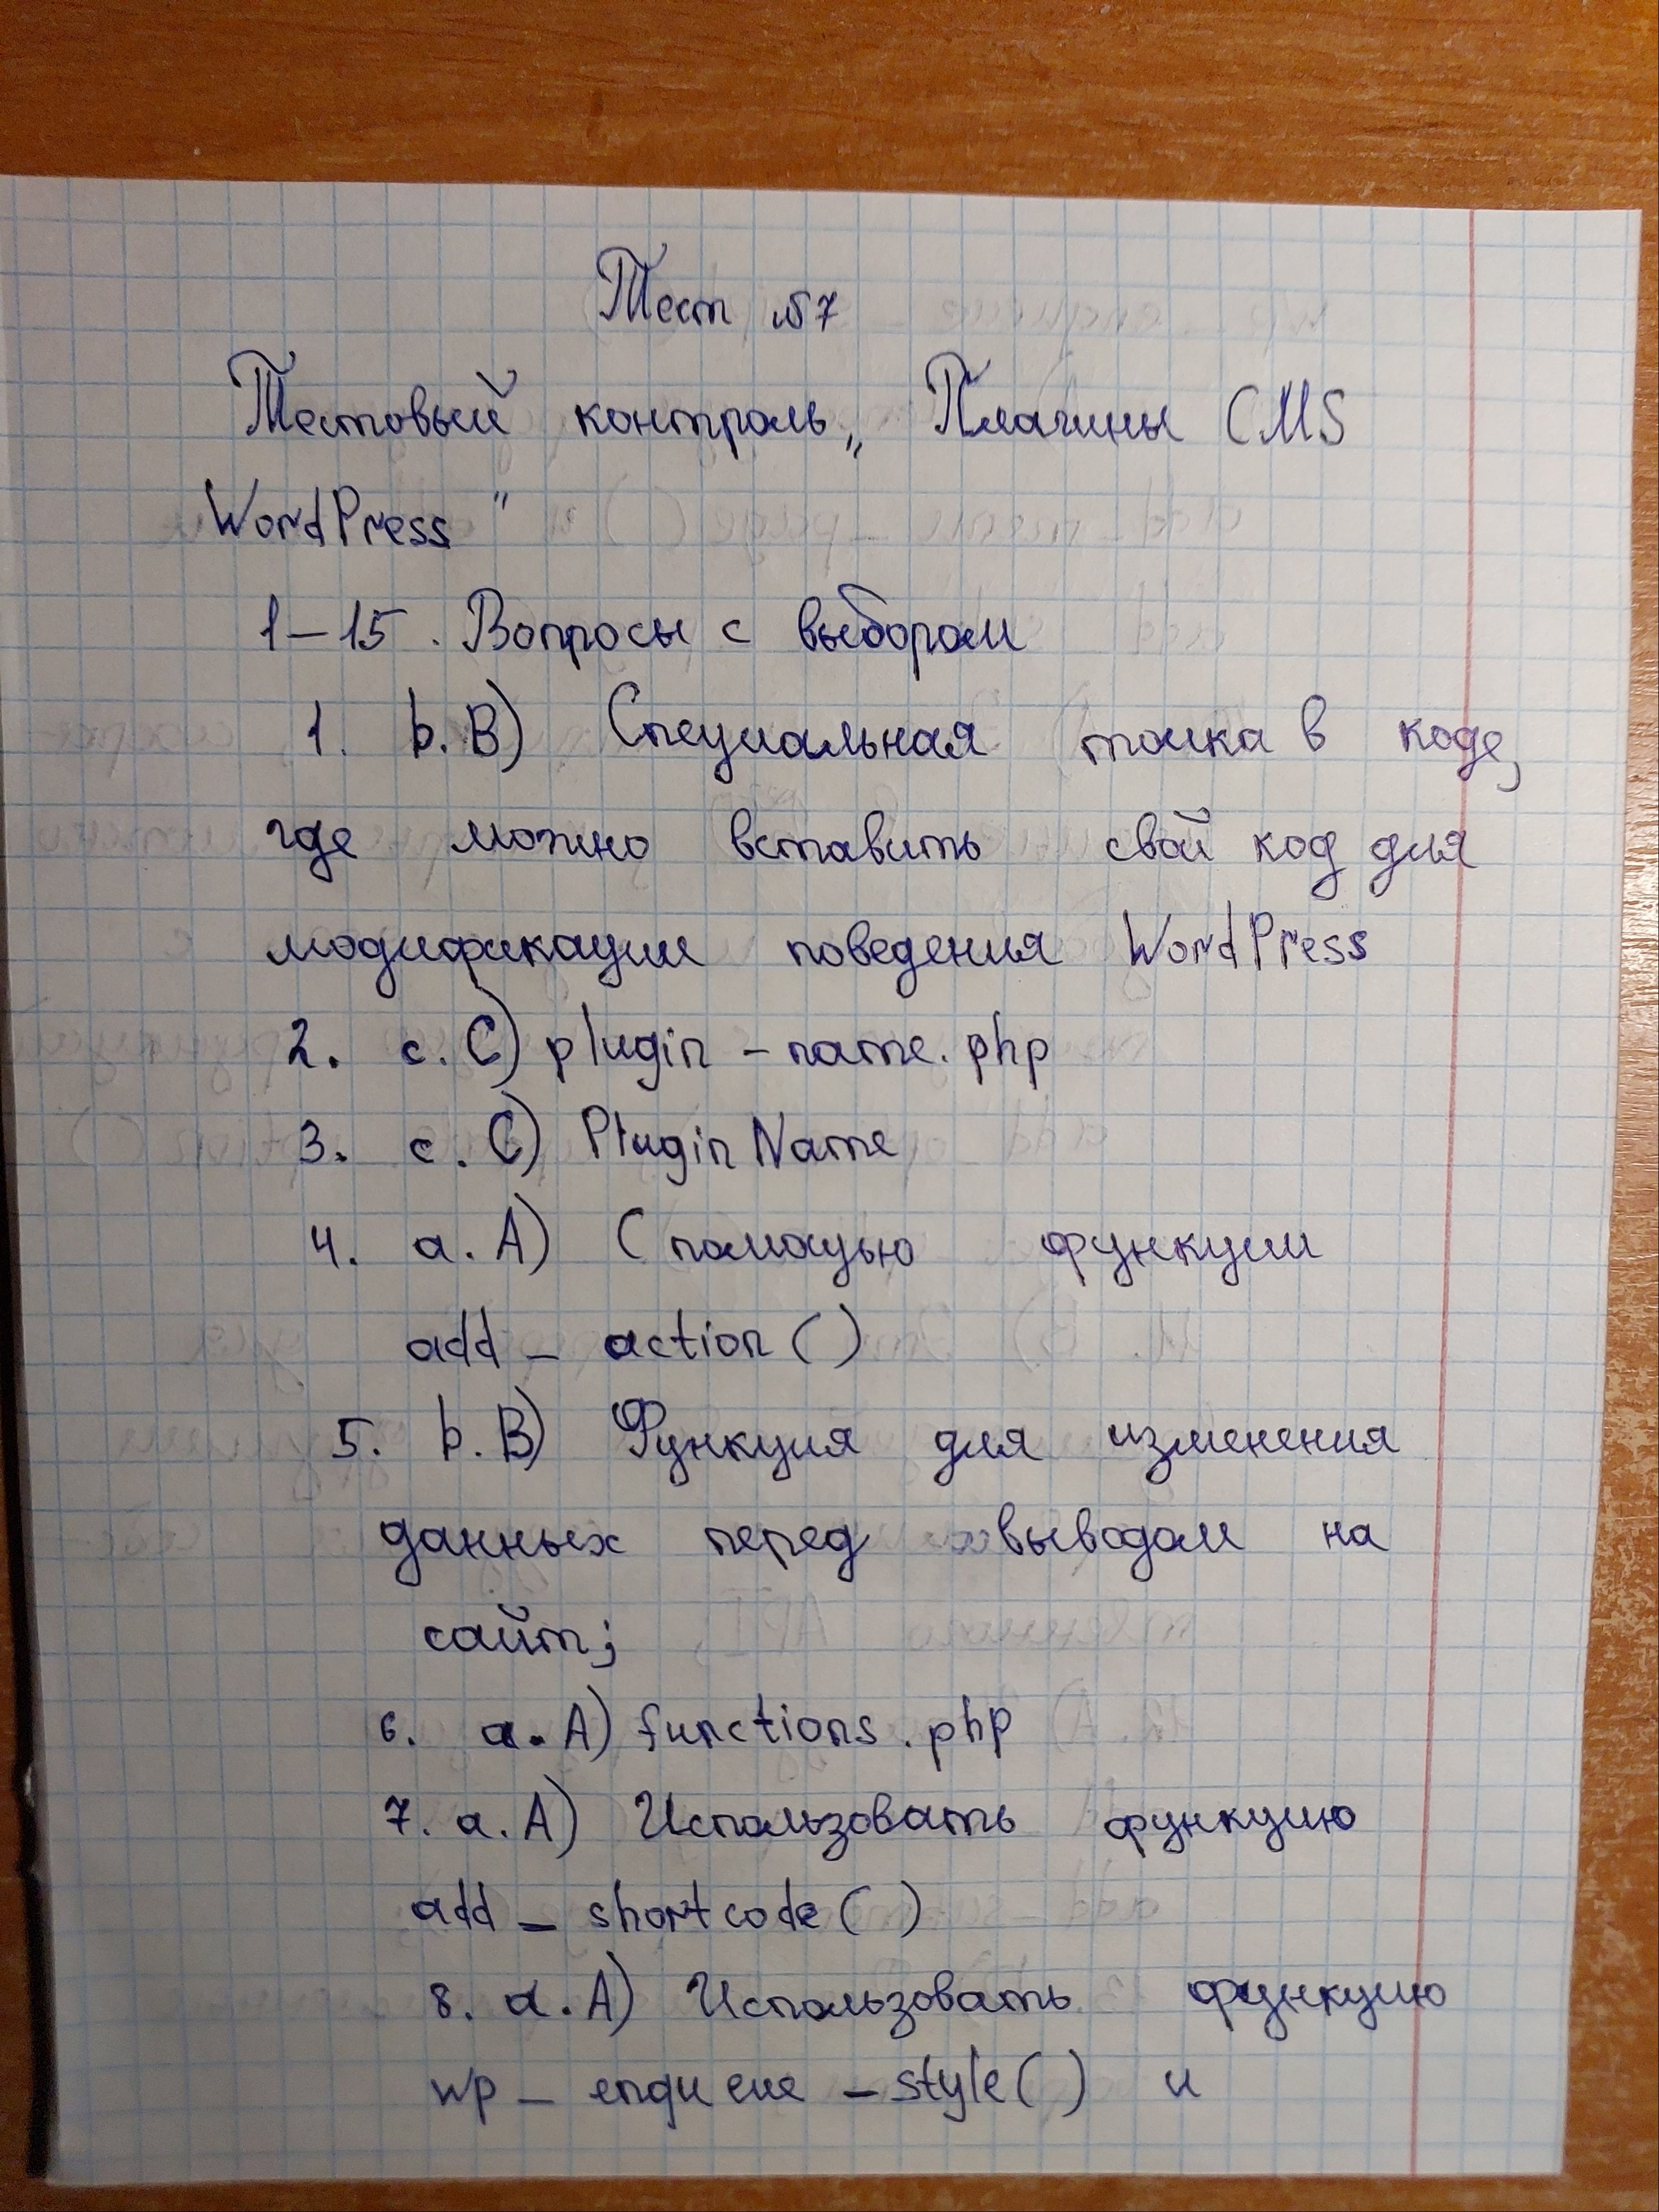 Тест №7
Тестовый контроль „ Плагины CMS
WordPress "
1-15. Вопросы с выбором
1. b. B) Специальная точка в коде,
где можно вставить свой код для
модификации поведения WordPress
2. c. C) plugin - name. php
3. c. C) Plugin Name
4. a. A) С помощью функции
add _ action ( )
5. b. B) Функция для изменения
данных перед выводом на
сайт;
6. a. A) functions. php
7. a. A) Использовать функцию
add _ shortcode ( )
8. a. A) Использовать функцию
wp _ enqueue _ style ( ) и